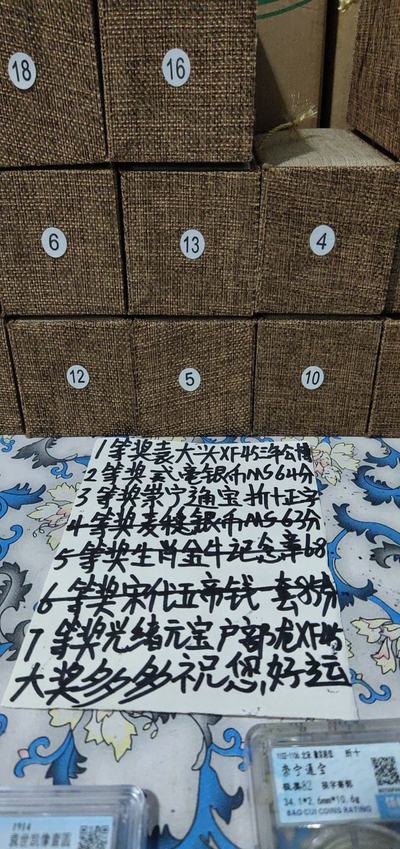 18
16
6
13
4
12
5
10
1等奖袁大头XF45三年公博
2等奖 龙银币MS64分
3等奖崇宁通宝折十正字
4等奖 银币MS63分
5等奖生肖金牛纪念章68
6等奖宋代五帝钱一套85分
7等奖光绪元宝户部龙XF45
大奖多多祝您好运
折十
崇宁通宝
极美82
34.1*2.6mm*10.6g
BAO CUI COINS RATING
1914
袁世凯像壹圆